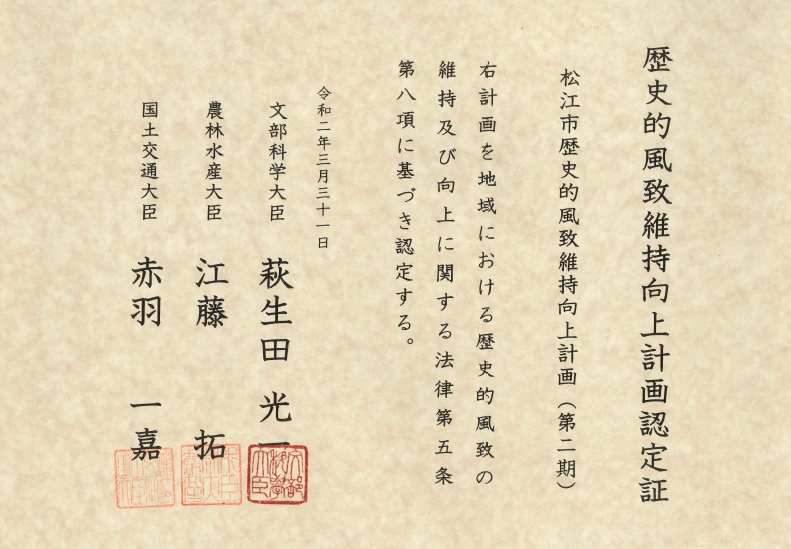 歴史的風致維持向上計画認定証
松江市歴史的風致維持向上計画（第二期）
右計画を地域における歴史的風致の
維持及び向上に関する法律第五条
第八項に基づき認定する。
令和二年三月三十一日
文部科学大臣　萩生田　光一
農林水産大臣　江藤　拓
国土交通大臣　赤羽　一嘉